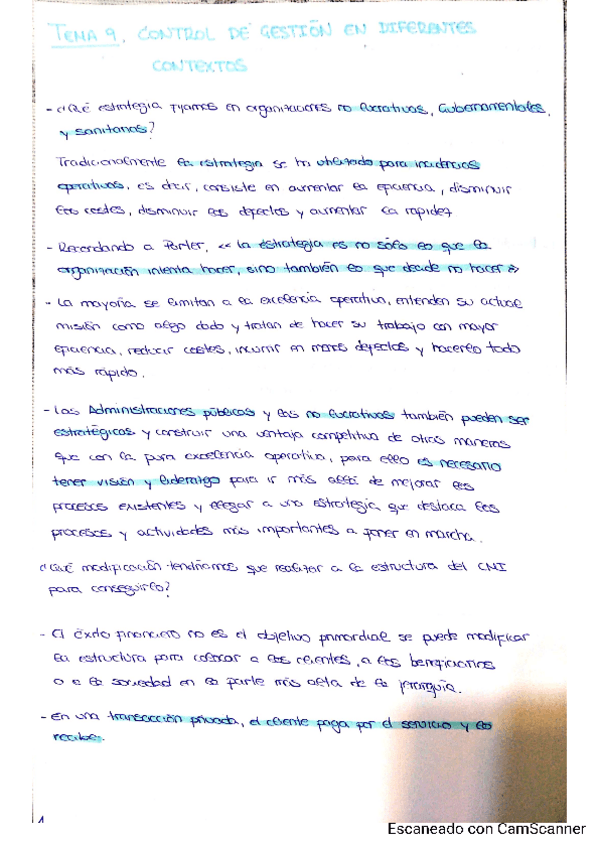 TEMA 9. CONTROL DE GESTIÓN EN DIFERENTES
CONTEXTOS
- ¿Qué estrategia fijamos en organizaciones no lucrativas, Gubernamentales,
y sanitarias?
Tradicionalmente la estrategia se ha utilizado para incidencias
operativas, es decir, consiste en aumentar la eficiencia, disminuir
los costes, disminuir los defectos y aumentar la rapidez
- Recordando a Porter, << la estrategia es no sólo lo que la
organización intenta hacer, sino también lo que decide no hacer >>
- La mayoría se limitan a la excelencia operativa, entienden su actual
misión como algo dado y tratan de hacer su trabajo con mayor
eficiencia, reducir costes, incurrir en menos defectos y hacerlo todo
más rápido.
- Las Administraciones públicas y las no lucrativas también pueden ser
estratégicas y construir una ventaja competitiva de otras maneras
que con la pura excelencia operativa, para ello es necesario
tener visión y liderazgo para ir más allá de mejorar los
procesos existentes y llegar a una estrategia que destaca los
procesos y actividades más importantes a poner en marcha.
¿Qué modificación tendríamos que realizar a la estructura del CMI
para conseguirlo?
- El éxito financiero no es el objetivo primordial se puede modificar
la estructura para colocar a los clientes, a los beneficiarios
o a la sociedad en la parte más alta de la jerarquía.
- En una transacción privada, el cliente paga por el servicio y lo
recibe.
1
Escaneado con CamScanner